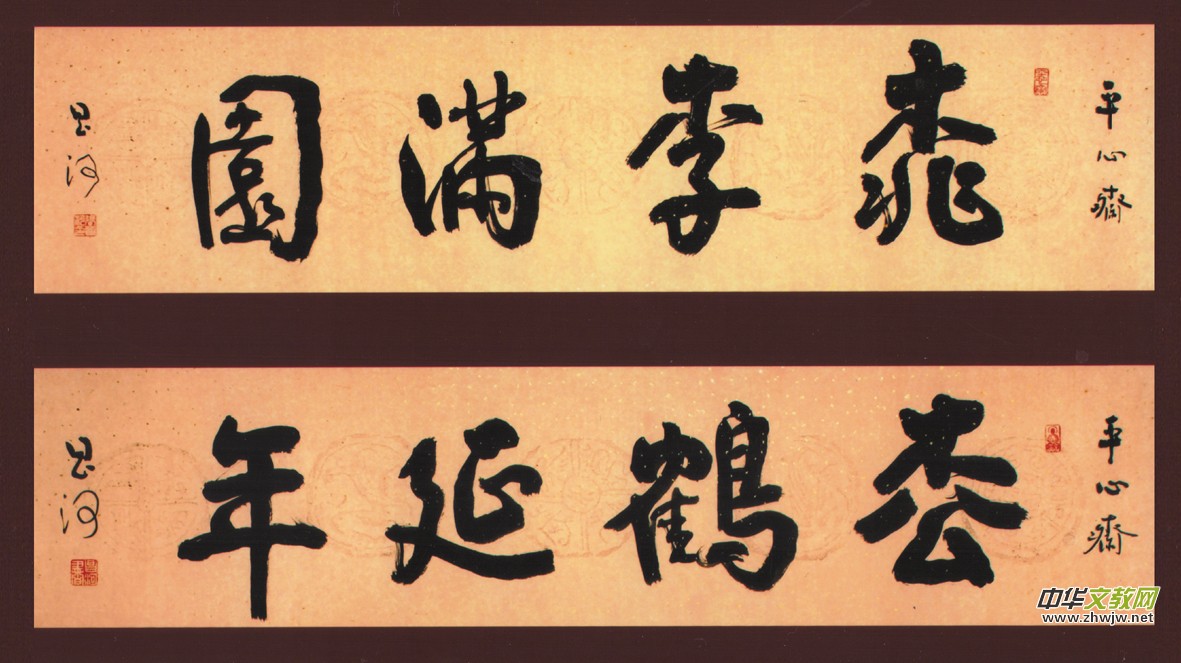 平心齋
桃李滿園
平心齋
松鶴延年
中华文教网
www.zhwjw.net